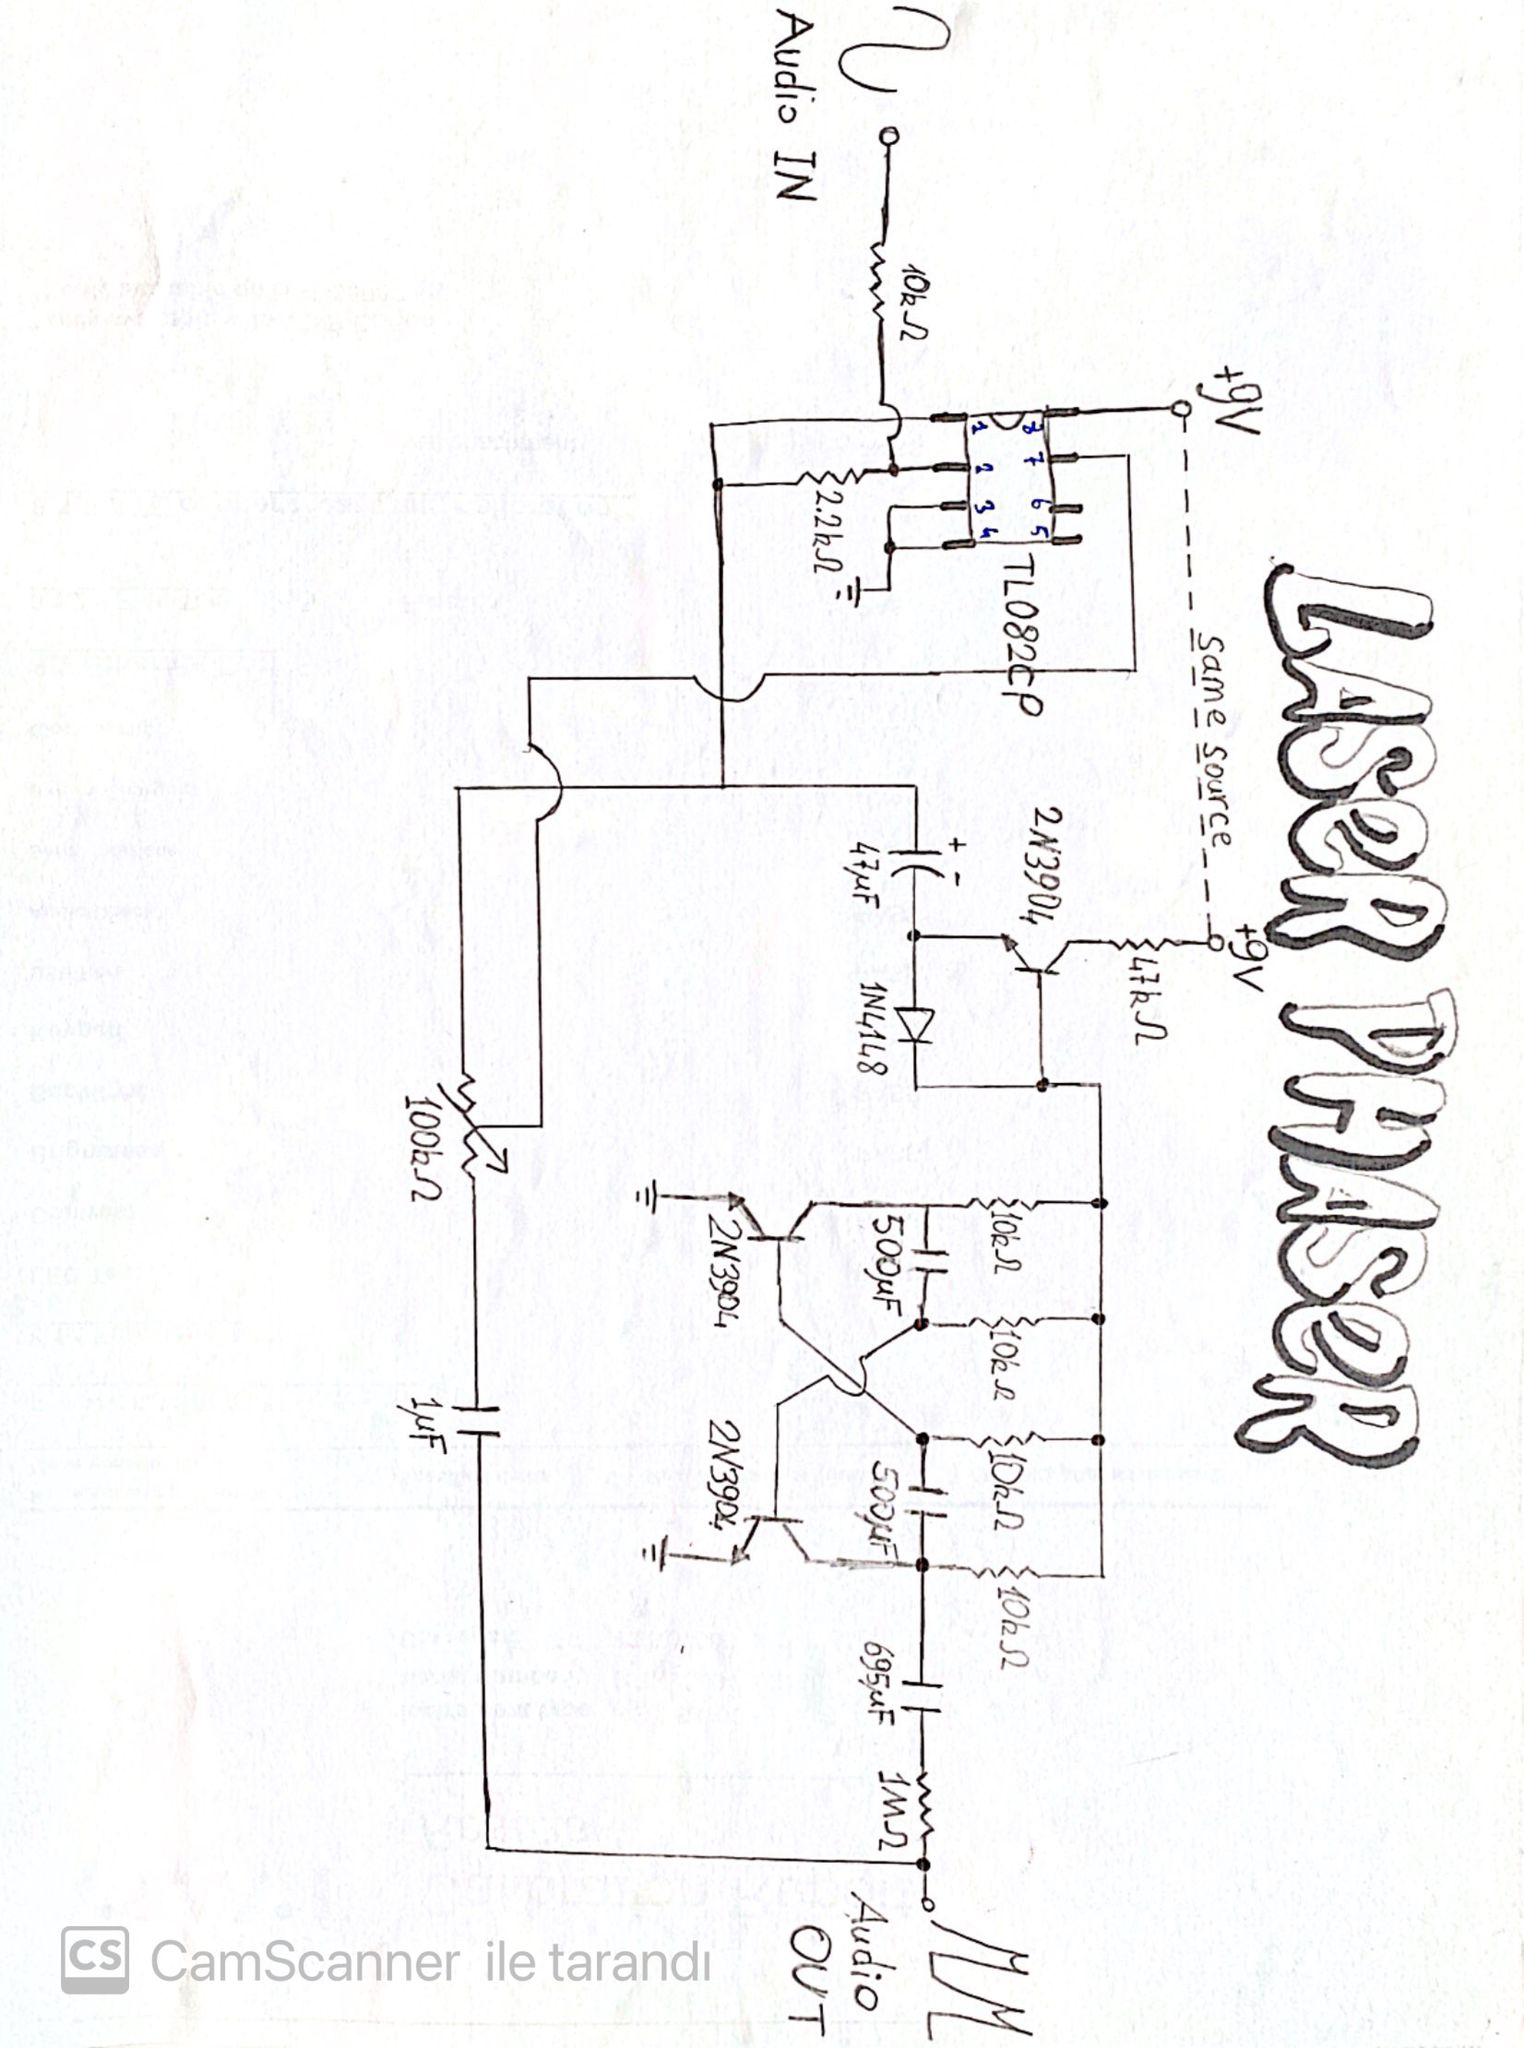 LASER PHASER
+9V
same source
+9V
47kΩ
2N3904
8 7 6 5
TL082CP
1 2 3 4
10kΩ
10kΩ
10kΩ
10kΩ
10kΩ
+ -
47µF
1N4148
500µF
500µF
695µF
1MΩ
Audio OUT
2.2kΩ
Audio IN
2N3904
2N3904
100kΩ
1µF
CS CamScanner ile tarandı